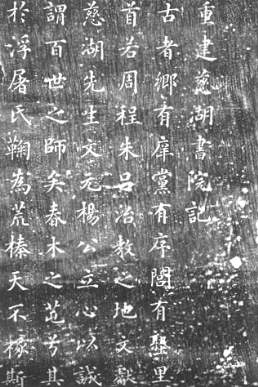 重建慈湖書院記
古者鄉有庠黨有序閭有塾里
首若周程朱呂冶教之地文獻
慈湖先生文元楊公立心以誠
謂百世之師矣春木之芚兮其
於浮屠氏鞠為荒榛天不椓斯